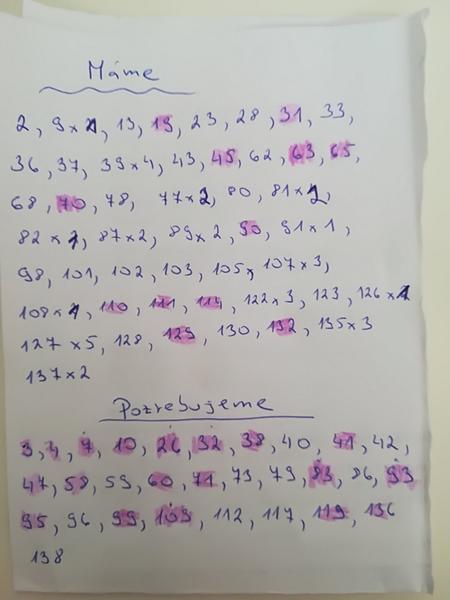 Máme
2, 9x1, 13, 19, 23, 28, 31, 33,
36, 37, 39x4, 43, 45, 62, 63, 65,
68, 70, 78, 77x2, 80, 81x2,
82x1, 87x2, 89x2, 90, 91x1,
98, 101, 102, 103, 105, 107x3,
108x1, 110, 111, 114, 122x3, 123, 126x1
127x5, 128, 129, 130, 132, 135x3
137x2
Potrebujeme
3, 4, 7, 10, 26, 32, 38, 40, 41, 42,
47, 58, 59, 60, 71, 73, 79, 83, 86, 93
95, 96, 99, 109, 112, 117, 119, 136
138